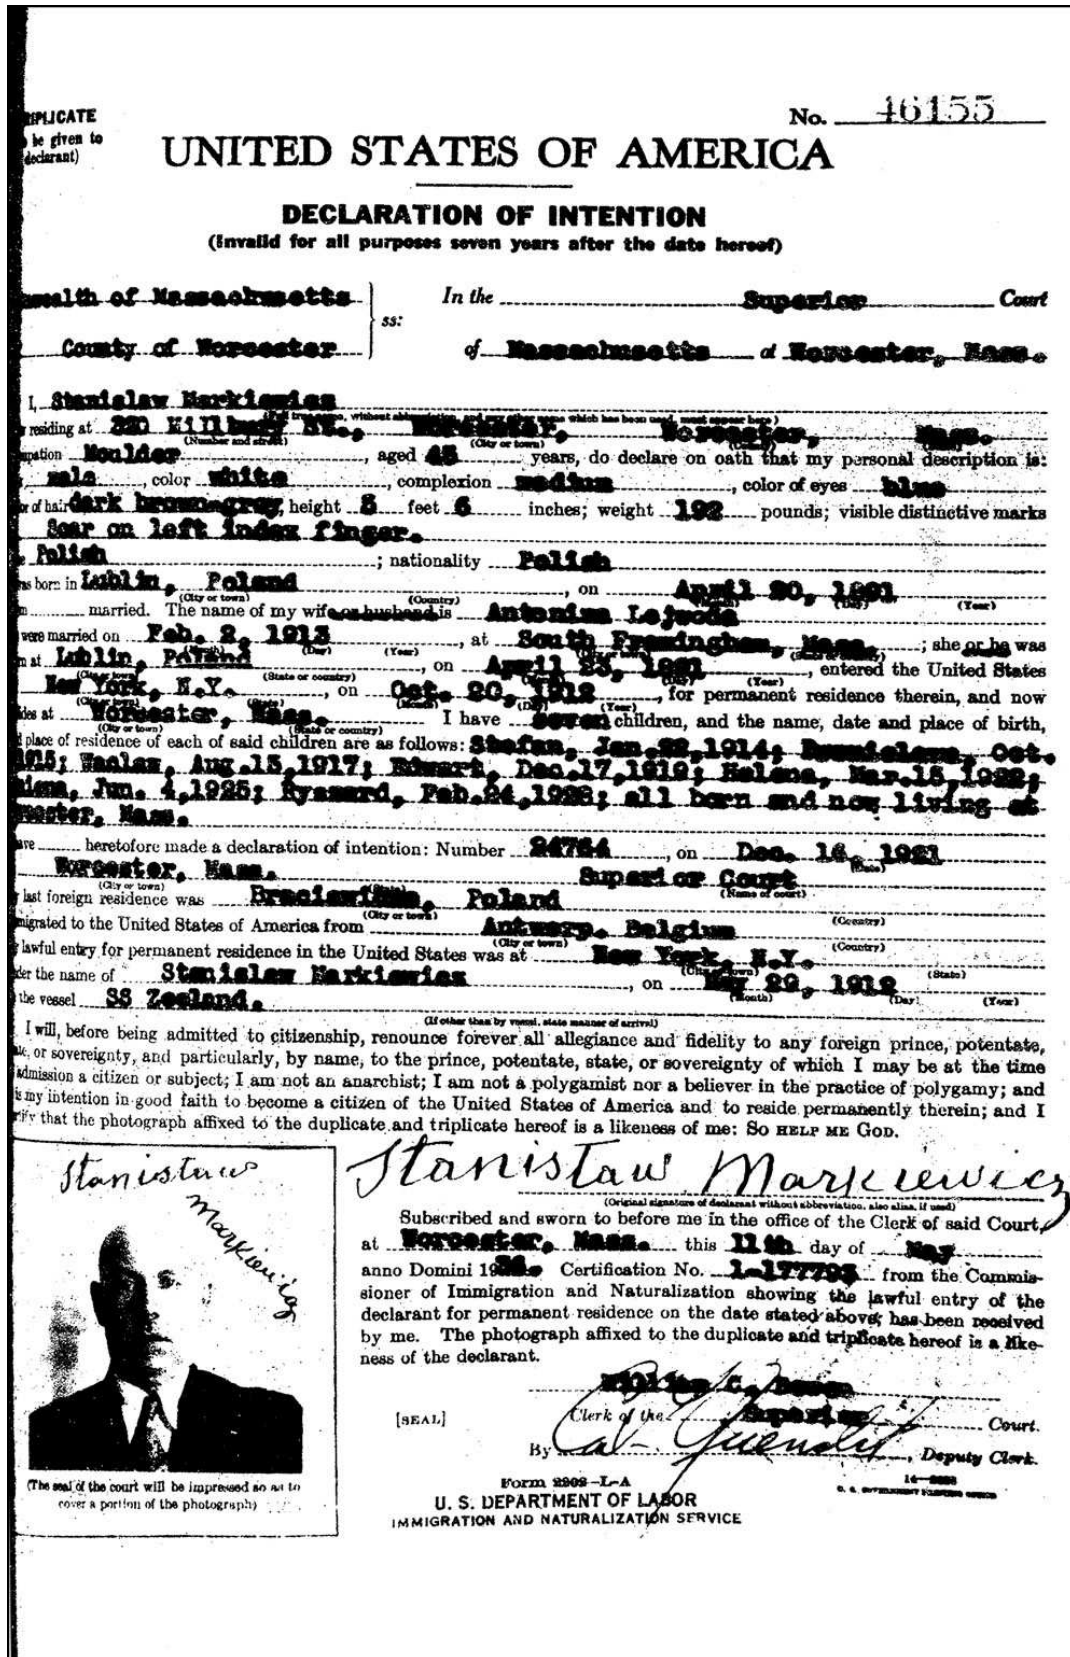 No. 46155
IPLICATE
be given to
declarant)
UNITED STATES OF AMERICA
DECLARATION OF INTENTION
(Invalid for all purposes seven years after the date hereof)
wealth of Massachusetts
In the Superior Court
ss:
County of Worcester
of Massachusetts at Worcester, Mass.
I, Stanislaw Markiewicz
(Full true name, without abbreviation, and any other name which has been used, must appear here)
residing at 320 Millbury St., Worcester, Worcester, Mass.
(Number and street) (City or town)
upation Moulder, aged 45 years, do declare on oath that my personal description is:
male, color white, complexion medium, color of eyes blue
or of hair dark brown-grey, height 5 feet 6 inches; weight 192 pounds; visible distinctive marks
Scar on left index finger.
Polish; nationality Polish
as born in Lublin, Poland, on April 20, 1891
(City or town) (Country) (Day) (Year)
married. The name of my wife or husband is Antonina
were married on Feb. 2, 1913, at South Framingham, Mass.; she or he was
(Day) (Year)
n at Lublin, Poland, on April 23, 1891, entered the United States
(State or country) (Year)
New York, N.Y., on Oct. 20, 1912, for permanent residence therein, and now
(Month) (Day) (Year)
ides at Worcester, Mass. I have seven children, and the name, date and place of birth,
(City or town) (State or country)
place of residence of each of said children are as follows: Stefan, Jan. 22, 1914; Oct.
1915; Waclaw, Aug. 15, 1917; Edwart, Dec. 17, 1919; Helena, Mar. 15, 1922;
Jun. 4, 1925; Ryszard, Feb. 24, 1928; all born and now living at
rcester, Mass.
ave heretofore made a declaration of intention: Number 24764, on Dec. 16, 1921
(Date)
Worcester, Mass. Superior Court
(City or town) (Name of court)
last foreign residence was Poland
(City or town) (Country)
migrated to the United States of America from Antwerp, Belgium
(City or town) (Country)
lawful entry for permanent residence in the United States was at New York, N.Y.
(City or town) (State)
der the name of Stanislaw Markiewicz, on May 29, 1912
(Month) (Day) (Year)
the vessel SS Zeeland.
(If other than by vessel, state manner of arrival)
I will, before being admitted to citizenship, renounce forever all allegiance and fidelity to any foreign prince, potentate,
te, or sovereignty, and particularly, by name, to the prince, potentate, state, or sovereignty of which I may be at the time
admission a citizen or subject; I am not an anarchist; I am not a polygamist nor a believer in the practice of polygamy; and
is my intention in good faith to become a citizen of the United States of America and to reside permanently therein; and I
rtify that the photograph affixed to the duplicate and triplicate hereof is a likeness of me: SO HELP ME GOD.
Stanisław Markiewicz
Stanisław Markiewicz
(Original signature of declarant without abbreviation, also alias, if used)
Subscribed and sworn to before me in the office of the Clerk of said Court,
at Worcester, Mass. this 11th day of May
anno Domini 19 Certification No. 1-177793 from the Commis-
sioner of Immigration and Naturalization showing the lawful entry of the
declarant for permanent residence on the date stated above, has been received
by me. The photograph affixed to the duplicate and triplicate hereof is a like-
ness of the declarant.
William C.
[SEAL]
Clerk of the Superior Court.
By , Deputy Clerk.
(The seal of the court will be impressed so as to
cover a portion of the photograph)
Form 2202-L-A
U. S. DEPARTMENT OF LABOR
IMMIGRATION AND NATURALIZATION SERVICE
U. S. GOVERNMENT PRINTING OFFICE